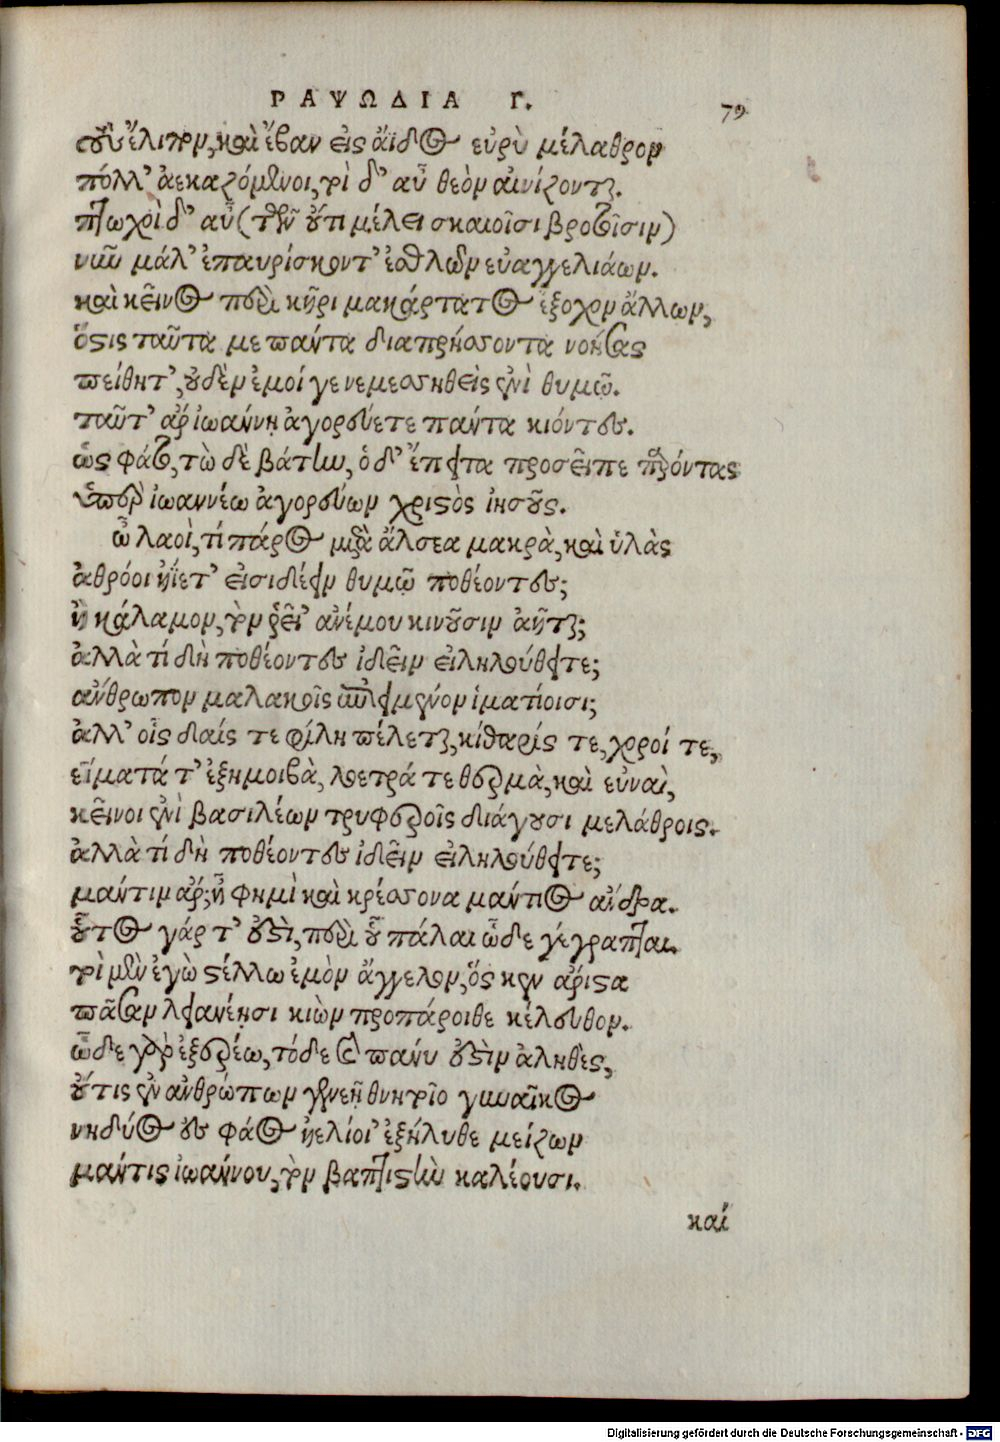 ΡΑΨΩΔΙΑ Γ. 79
ἔλιπον, καὶ ἔβαν εἰς ἄϊδος εὐρὺ μέλαθρον
πόλλ' ἀεκαζόμενοι, τοὶ δ' αὖ θεὸν αἰνίζονται.
πτωχοὶ δ' αὖ (τῶν οὔτι μέλει σκαιοῖσι βροτοῖσιν)
νῦν μάλ' ἐπαυρίσκοντ' ἐσθλῶν εὐαγγελιάων.
καὶ κεῖνος περὶ κῆρι μακάρτατος ἔξοχον ἄλλων,
ὅστις ταῦτά με πάντα διαπρήσσοντα νοήσας
πείθητ', οὐδὲν ἐμοί γε νεμεσσηθεὶς ἐνὶ θυμῷ.
ταῦτ' ἄρ' ἰωάννῃ ἀγορεύετε πάντα κιόντες.
ὣς φάτο, τὼ δὲ βάτην, ὁ δ' ἔπειτα προσεῖπε παρόντας
ὑπὲρ ἰωαννέω ἀγορεύων χριστὸς ἰησοῦς.
ὦ λαοὶ, τί πάρος μετὰ ἄλσεα μακρὰ, καὶ ὑλὰς
ἀθρόοι ἠΐετ' εἰσιδέειν θυμῷ ποθέοντες;
ἢ κάλαμον, τὸν ῥεῖ' ἀνέμου κινοῦσιν ἀῆται;
ἀλλὰ τί δὴ ποθέοντες ἰδεῖν εἰληλούθειτε;
ἄνθρωπον μαλακοῖς εἱμένον ἱματίοισι;
ἀλλ' οἷς δαίς τε φίλη πέλεται, κίθαρίς τε, χοροί τε,
εἵματά τ' ἐξημοιβὰ, λοετρά τε θερμὰ, καὶ εὐναὶ,
κεῖνοι ἐνὶ βασιλέων τρυφεροῖς διάγουσι μελάθροις.
ἀλλὰ τί δὴ ποθέοντες ἰδεῖν εἰληλούθειτε;
μάντιν ἄρ'; ἦ φημὶ καὶ κρέσσονα μάντιος ἄνδρα.
οὗτος γάρ τ' ἐστὶ, περὶ οὗ πάλαι ὧδε γέγραπται.
τοὶ μὲν ἐγὼ στέλλω ἐμὸν ἄγγελον, ὅς κεν ἄριστα
πᾶσαν λειανέησι κιὼν προπάροιθε κέλευθον.
ὧδε γὰρ ἐξερέω, τόδε καὶ πάνυ ἐστὶν ἀληθὲς,
οὔτις ἐν ἀνθρώπων γενεῇ θνητοῖο γυναικὸς
νηδύος ἐς φάος ἠελίοι' ἐξήλυθε μείζων
μάντις ἰωάννου, τὸν βαπτιστὴν καλέουσι.
καί
Digitalisierung gefördert durch die Deutsche Forschungsgemeinschaft - DFG